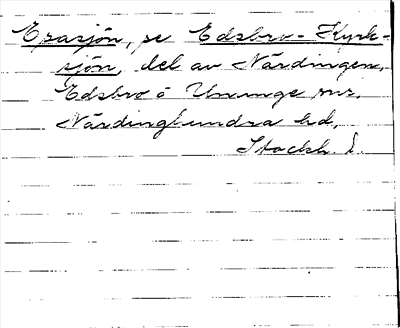 Erasjön, se Edsbro-Kyrk-
sjön, del av Närdingen,
Edsbro o Ununge snr,
Närdinghundra hd,
Stockh. l.